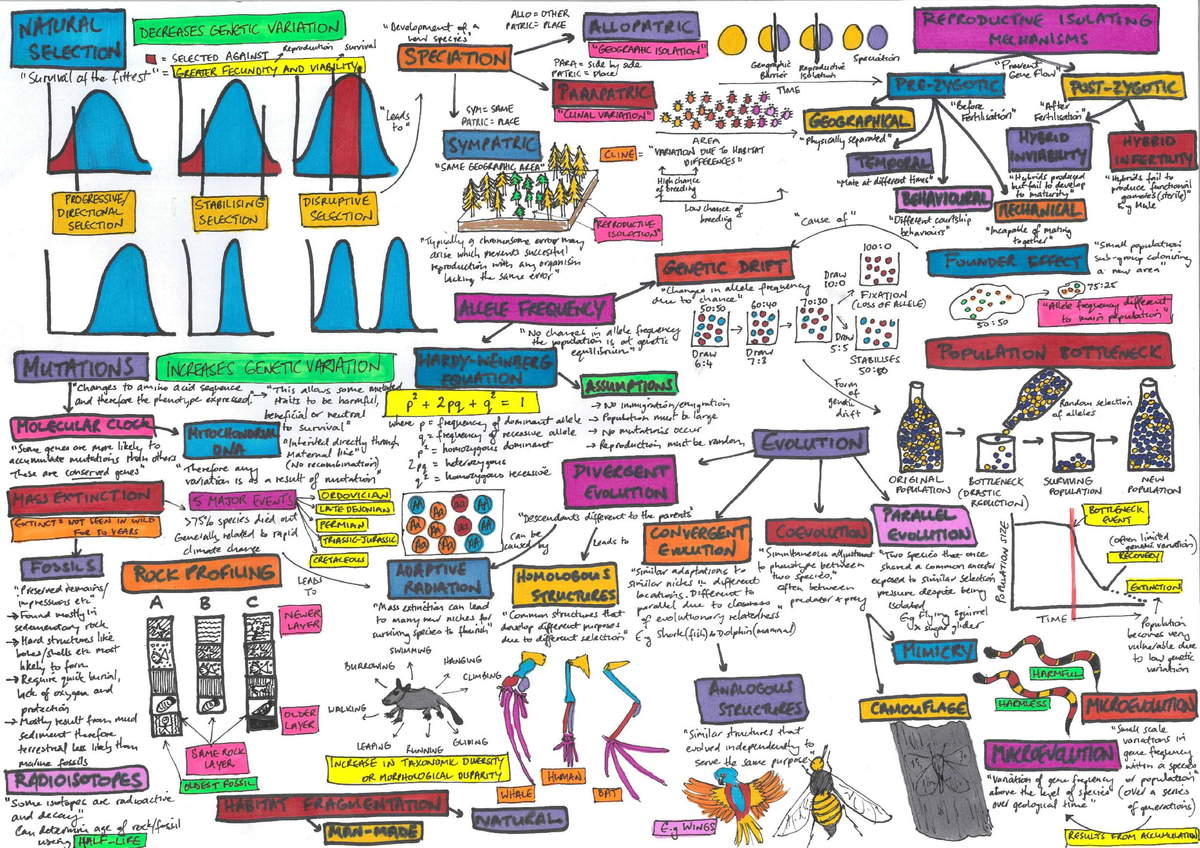 NATURAL
SELECTION
DECREASES GENETIC VARIATION
= SELECTED AGAINST
Reproduction
Survival
"Survival of the fittest"
= GREATER FECUNDITY AND VIABILITY
"Leads
to"
PROGRESSIVE/
DIRECTIONAL
SELECTION
STABILISING
SELECTION
DISRUPTIVE
SELECTION
"Development of a
new species"
SPECIATION
ALLO = OTHER
PATRIC = PLACE
ALLOPATRIC
"GEOGRAPHIC ISOLATION"
PARA = side by side
PATRIC = place
PARAPATRIC
"CLINAL VARIATION"
SYM = SAME
PATRIC = PLACE
SYMPATRIC
"SAME GEOGRAPHIC AREA"
"REPRODUCTIVE
ISOLATION"
"Typically a chromosome error may
arise which prevents successful
reproduction with any organism
lacking the same error"
Geographic
Barrier
Reproductive
Isolation
Speciation
TIME
AREA
CLINE =
"VARIATION DUE TO HABITAT
DIFFERENCES"
High chance
of breeding
Low chance of
breeding
REPRODUCTIVE ISOLATING
MECHANISMS
"Prevent
Gene Flow"
PRE-ZYGOTIC
POST-ZYGOTIC
"Before
Fertilisation"
"After
Fertilisation"
GEOGRAPHICAL
"Physically separated"
TEMPORAL
"Mate at different times"
BEHAVIOURAL
"Different courtship
behaviours"
MECHANICAL
"Incapable of mating
together"
HYBRID
INVIABILITY
"Hybrids produced
but fail to develop
to maturity"
HYBRID
INFERTILITY
"Hybrids fail to
produce functional
gametes (sterile)
E.g Mule
ALLELE FREQUENCY
"No changes in allele frequency
the population is at genetic
equilibrium"
GENETIC DRIFT
"Changes in allele frequency
due to chance"
"Cause of"
50:50
60:40
70:30
Draw
6:4
Draw
7:3
Draw
10:0
100:0
FIXATION
(LOSS OF ALLELE)
Draw
5:5
STABILISES
50:50
Form
of
genetic
drift
FOUNDER EFFECT
"Small population
sub-group colonizing
a new area"
50:50
75:25
"Allele frequency different
to main population"
POPULATION BOTTLENECK
Random selection
of alleles
ORIGINAL
POPULATION
BOTTLENECK
(DRASTIC
REDUCTION)
SURVIVING
POPULATION
NEW
POPULATION
POPULATION SIZE
TIME
BOTTLENECK
EVENT
(often limited
genetic variation)
RECOVERY
EXTINCTION
Population
becomes very
vulnerable due
to low genetic
variation
MUTATIONS
INCREASES GENETIC VARIATION
"Changes to amino acid sequence
and therefore the phenotype expressed"
"This allows some mutated
traits to be harmful,
beneficial or neutral
to survival"
MOLECULAR CLOCK
"Some genes are more likely to
accumulate mutations than others
These are conserved genes"
MITOCHONDRIAL
DNA
"Inherited directly through
Maternal line"
(No recombination)
"Therefore any
variation is as a result of mutation"
HARDY-WEINBERG
EQUATION
p² + 2pq + q² = 1
where p = frequency of dominant allele
q = frequency of recessive allele
p² = homozygous dominant
2pq = heterozygous
q² = homozygous recessive
AA
Aa
aa
AA
Aa
Aa
aa
AA
Aa
Aa
AA
AA
ASSUMPTIONS
→ No immigration/emigration
→ Population must be large
→ No mutations occur
→ Reproduction must be random
MASS EXTINCTION
EXTINCT = NOT SEEN IN WILD
FOR 50 YEARS
5 MAJOR EVENTS
>75% species died out
Generally related to rapid
climate change
ORDOVICIAN
LATE DEVONIAN
PERMIAN
TRIASSIC-JURASSIC
CRETACEOUS
LEADS
TO
EVOLUTION
DIVERGENT
EVOLUTION
"Descendants different to the parents"
can be
caused by
Leads to
ADAPTIVE
RADIATION
"Mass extinction can lead
to many new niches for
surviving species to flourish"
SWIMMING
BURROWING
HANGING
CLIMBING
WALKING
LEAPING
RUNNING
GLIDING
INCREASE IN TAXONOMIC DIVERSITY
OR MORPHOLOGICAL DISPARITY
HOMOLOGOUS
STRUCTURES
"Common structures that
develop different purposes
due to different selection"
WHALE
HUMAN
BAT
CONVERGENT
EVOLUTION
"Similar adaptations to
similar niches in different
locations. Different to
parallel due to closeness
of evolutionary relatedness"
E.g Shark (fish) & Dolphin (mammal)
COEVOLUTION
"Simultaneous adjustment
to phenotype between
two species"
often between
predator & prey
PARALLEL
EVOLUTION
"Two species that once
shared a common ancestor
exposed to similar selection
pressure despite being
isolated
E.g Flying squirrel
x sugar glider
MIMICRY
HARMFUL
HARMLESS
CAMOUFLAGE
ANALOGOUS
STRUCTURES
"Similar structures that
evolved independently to
serve the same purpose"
E.g WINGS
MICROEVOLUTION
"Small scale
variations in
gene frequency
within a species
or population"
(over a series
of generations)
MACROEVOLUTION
"Variation of gene frequency
above the level of species
over geological time"
RESULTS FROM ACCUMULATION
FOSSILS
"Preserved remains/
impressions etc"
→ Found mostly in
sedimentary rock
→ Hard structures like
bones/shells etc most
likely to form
→ Require quick burial,
lack of oxygen and
protection
→ Mostly result from mud
sediment therefore
terrestrial less likely than
marine fossils
ROCK PROFILING
A
B
C
NEWER
LAYER
OLDER
LAYER
SAME ROCK
LAYER
OLDEST FOSSIL
RADIOISOTOPES
"Some isotopes are radioactive
and decay"
Can determine age of rock/fossil
using HALF-LIFE
HABITAT FRAGMENTATION
MAN-MADE
NATURAL